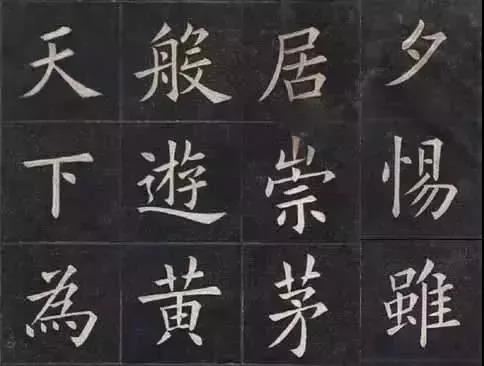 夕惕雖
居崇茅
般遊黃
天下為